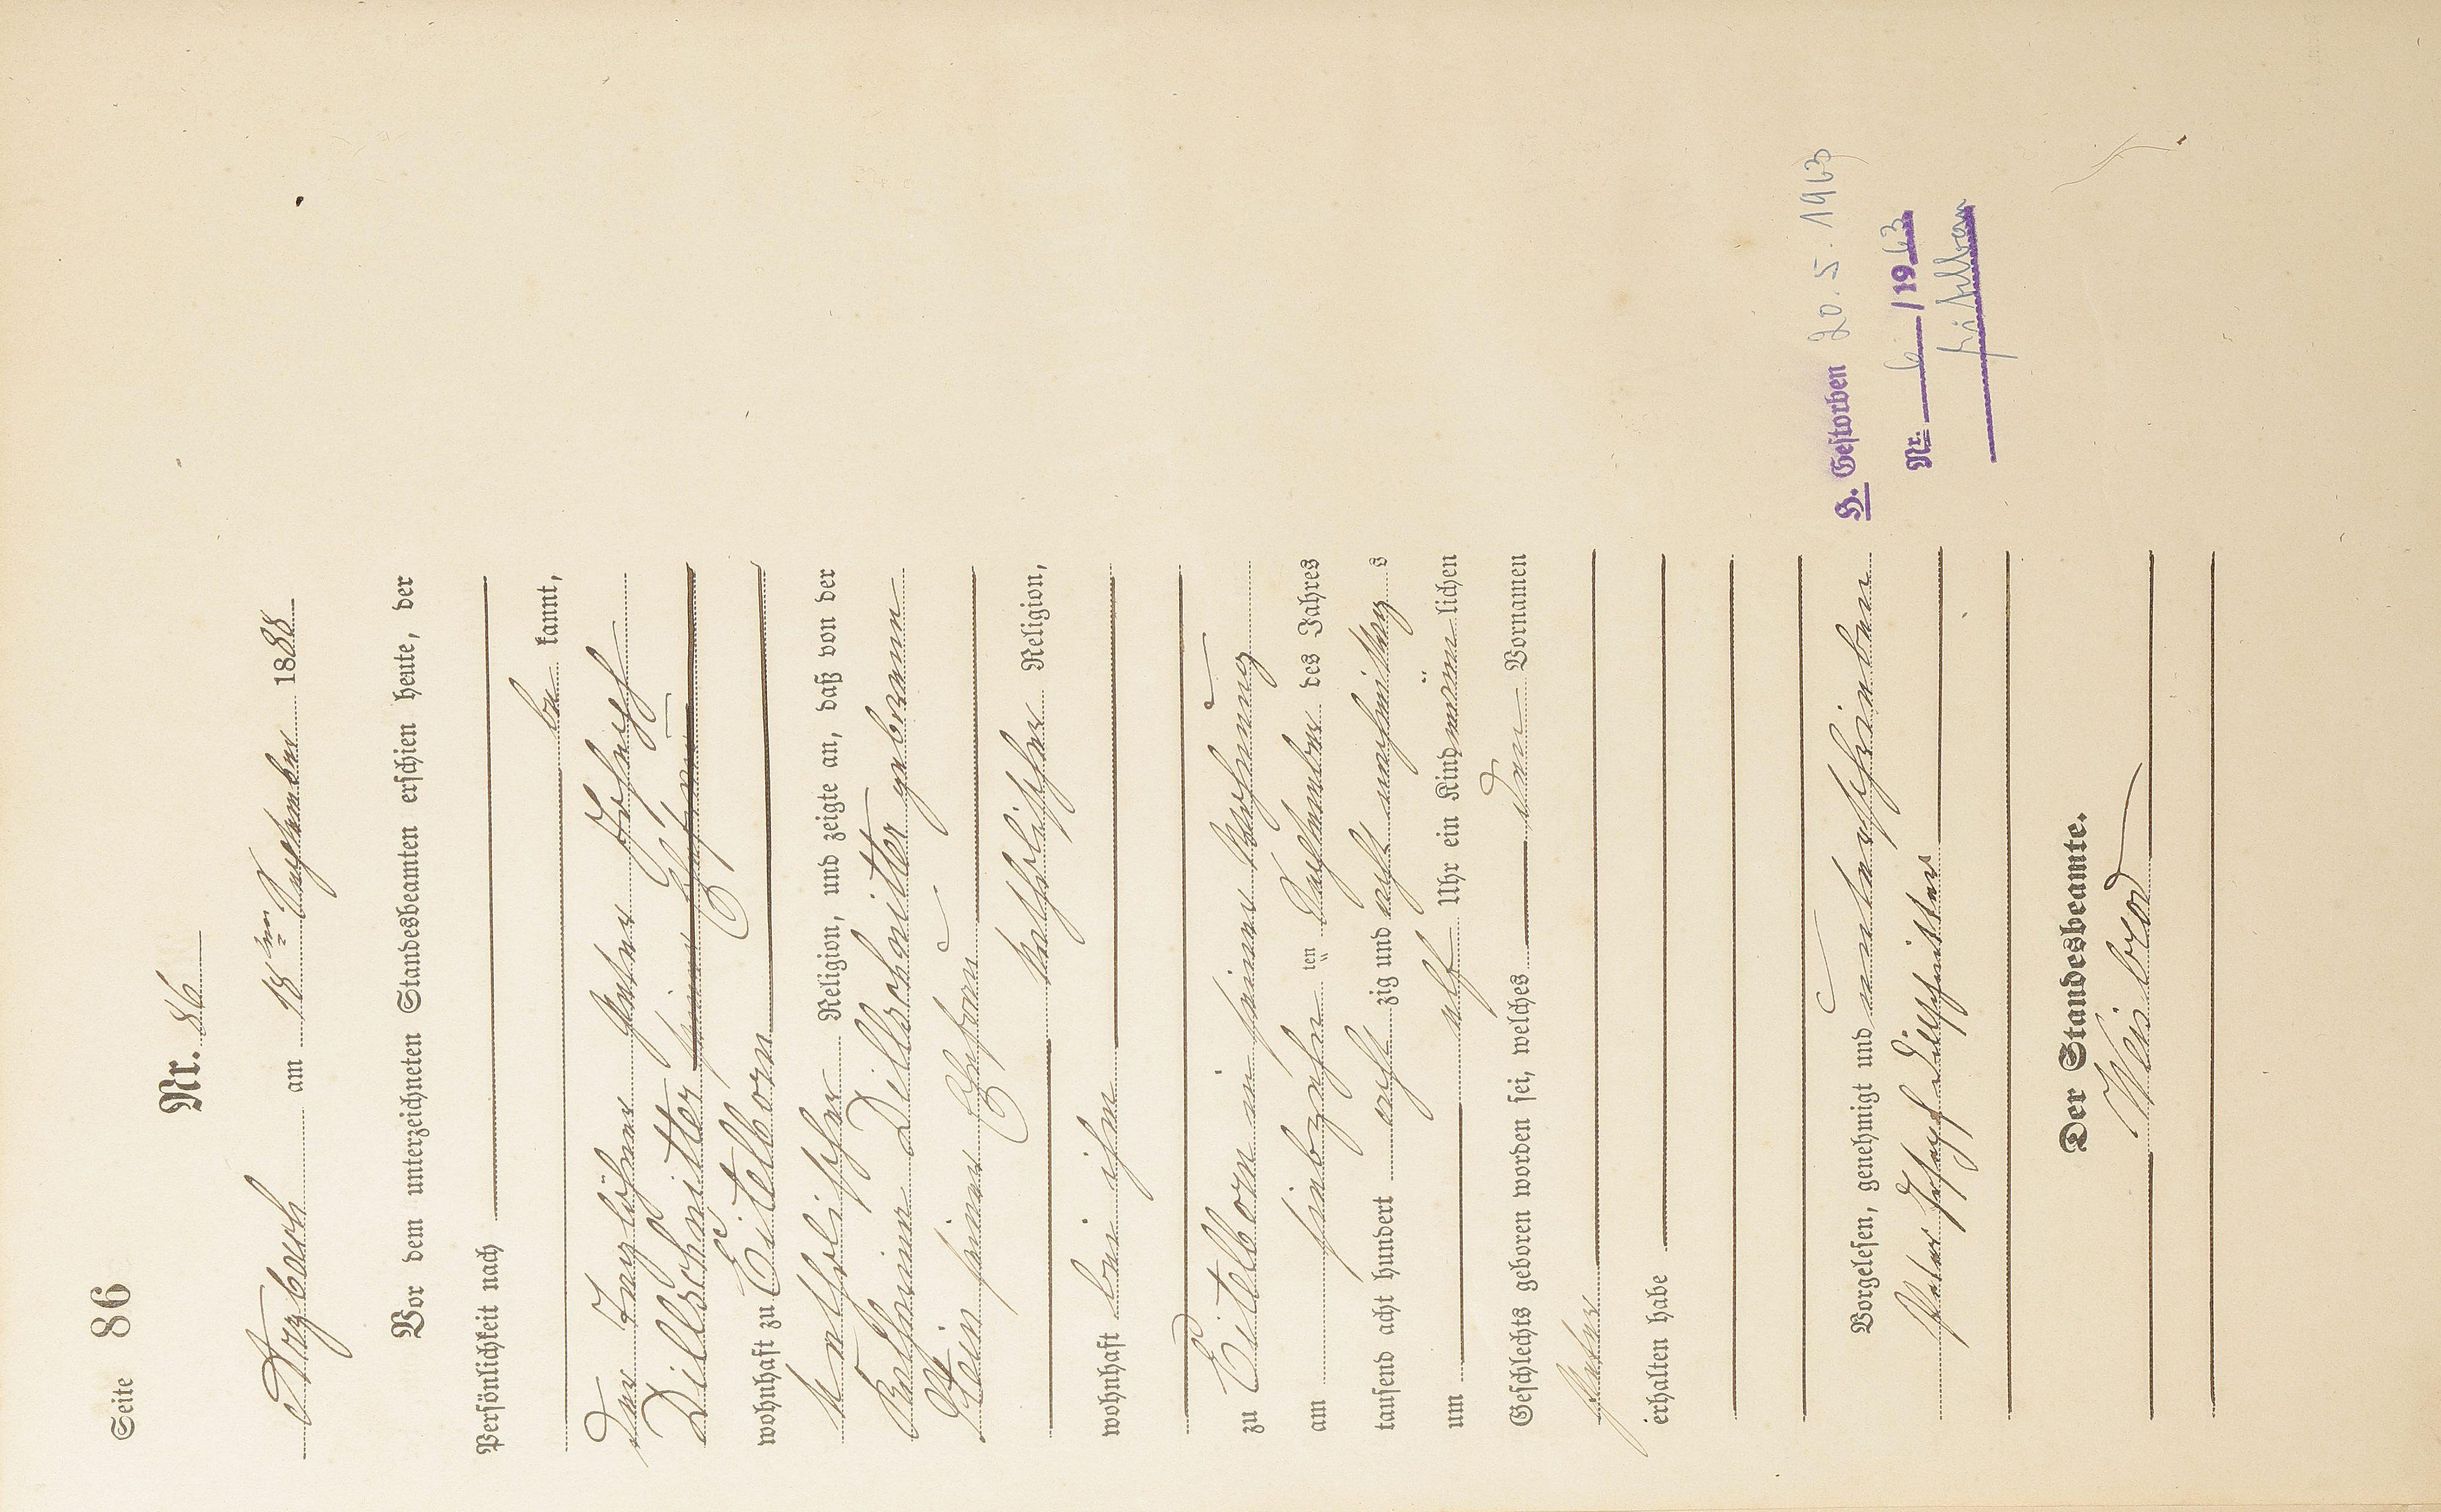 Seite 86
Nr. 86
Arzbach am 18ten September 1888
Vor dem unterzeichneten Standesbeamten erschien heute, der
Persönlichkeit nach
be kannt,
der Taglöhner Peter Joseph
Dillschnitter
wohnhaft zu Eitelborn
katholischer Religion, und zeigte an, daß von der
Katharina Dillschnitter geborenen
Klein seiner Ehefrau
katholischer Religion,
wohnhaft bei ihm
zu Eitelborn in seiner Wohnung
am siebzehn ten September des Jahres
tausend acht hundert acht zig und acht nachmittag s
um elf Uhr ein Kind männ lichen
Geschlechts geboren worden sei, welches den Vornamen
Peter
erhalten habe
Vorgelesen, genehmigt und unterschrieben
Peter Joseph Dillschnitter
Der Standesbeamte.
Weisbrod
H. Gestorben 20.5.1963
Nr. 6 /1963
Eitelborn